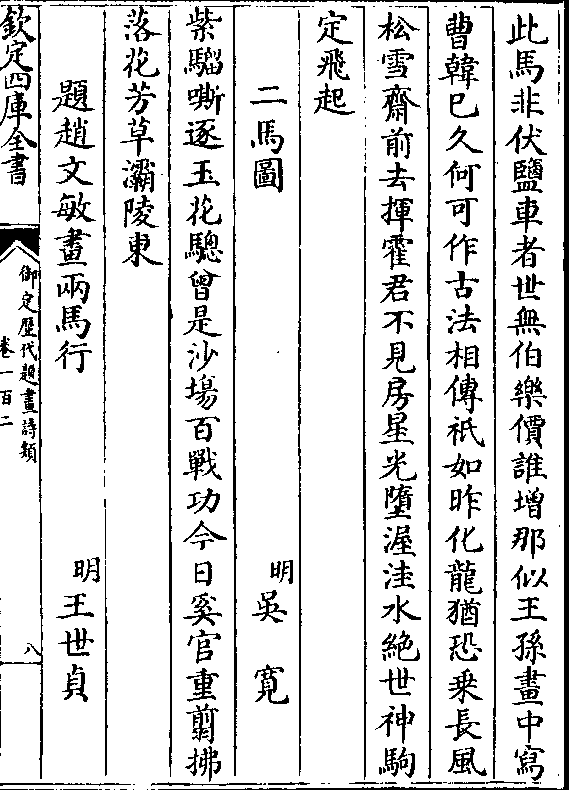 此馬非伏鹽車者世無伯樂價誰增那似王孫畫中寫
曹韓已久何可作古法相傳祇如昨化龍猶恐乗長風
松雪齋前去揮霍君不見房星光墮渥洼水絶世神駒
定飛起
二馬圖　明吳寛
紫騮嘶逐玉花驄曾是沙場百戰功今日奚官重翦拂
落花芳草灞陵東
題趙文敏畫兩馬行　明王世貞
欽定四庫全書
御定歷代題畫詩類
卷一百二
八